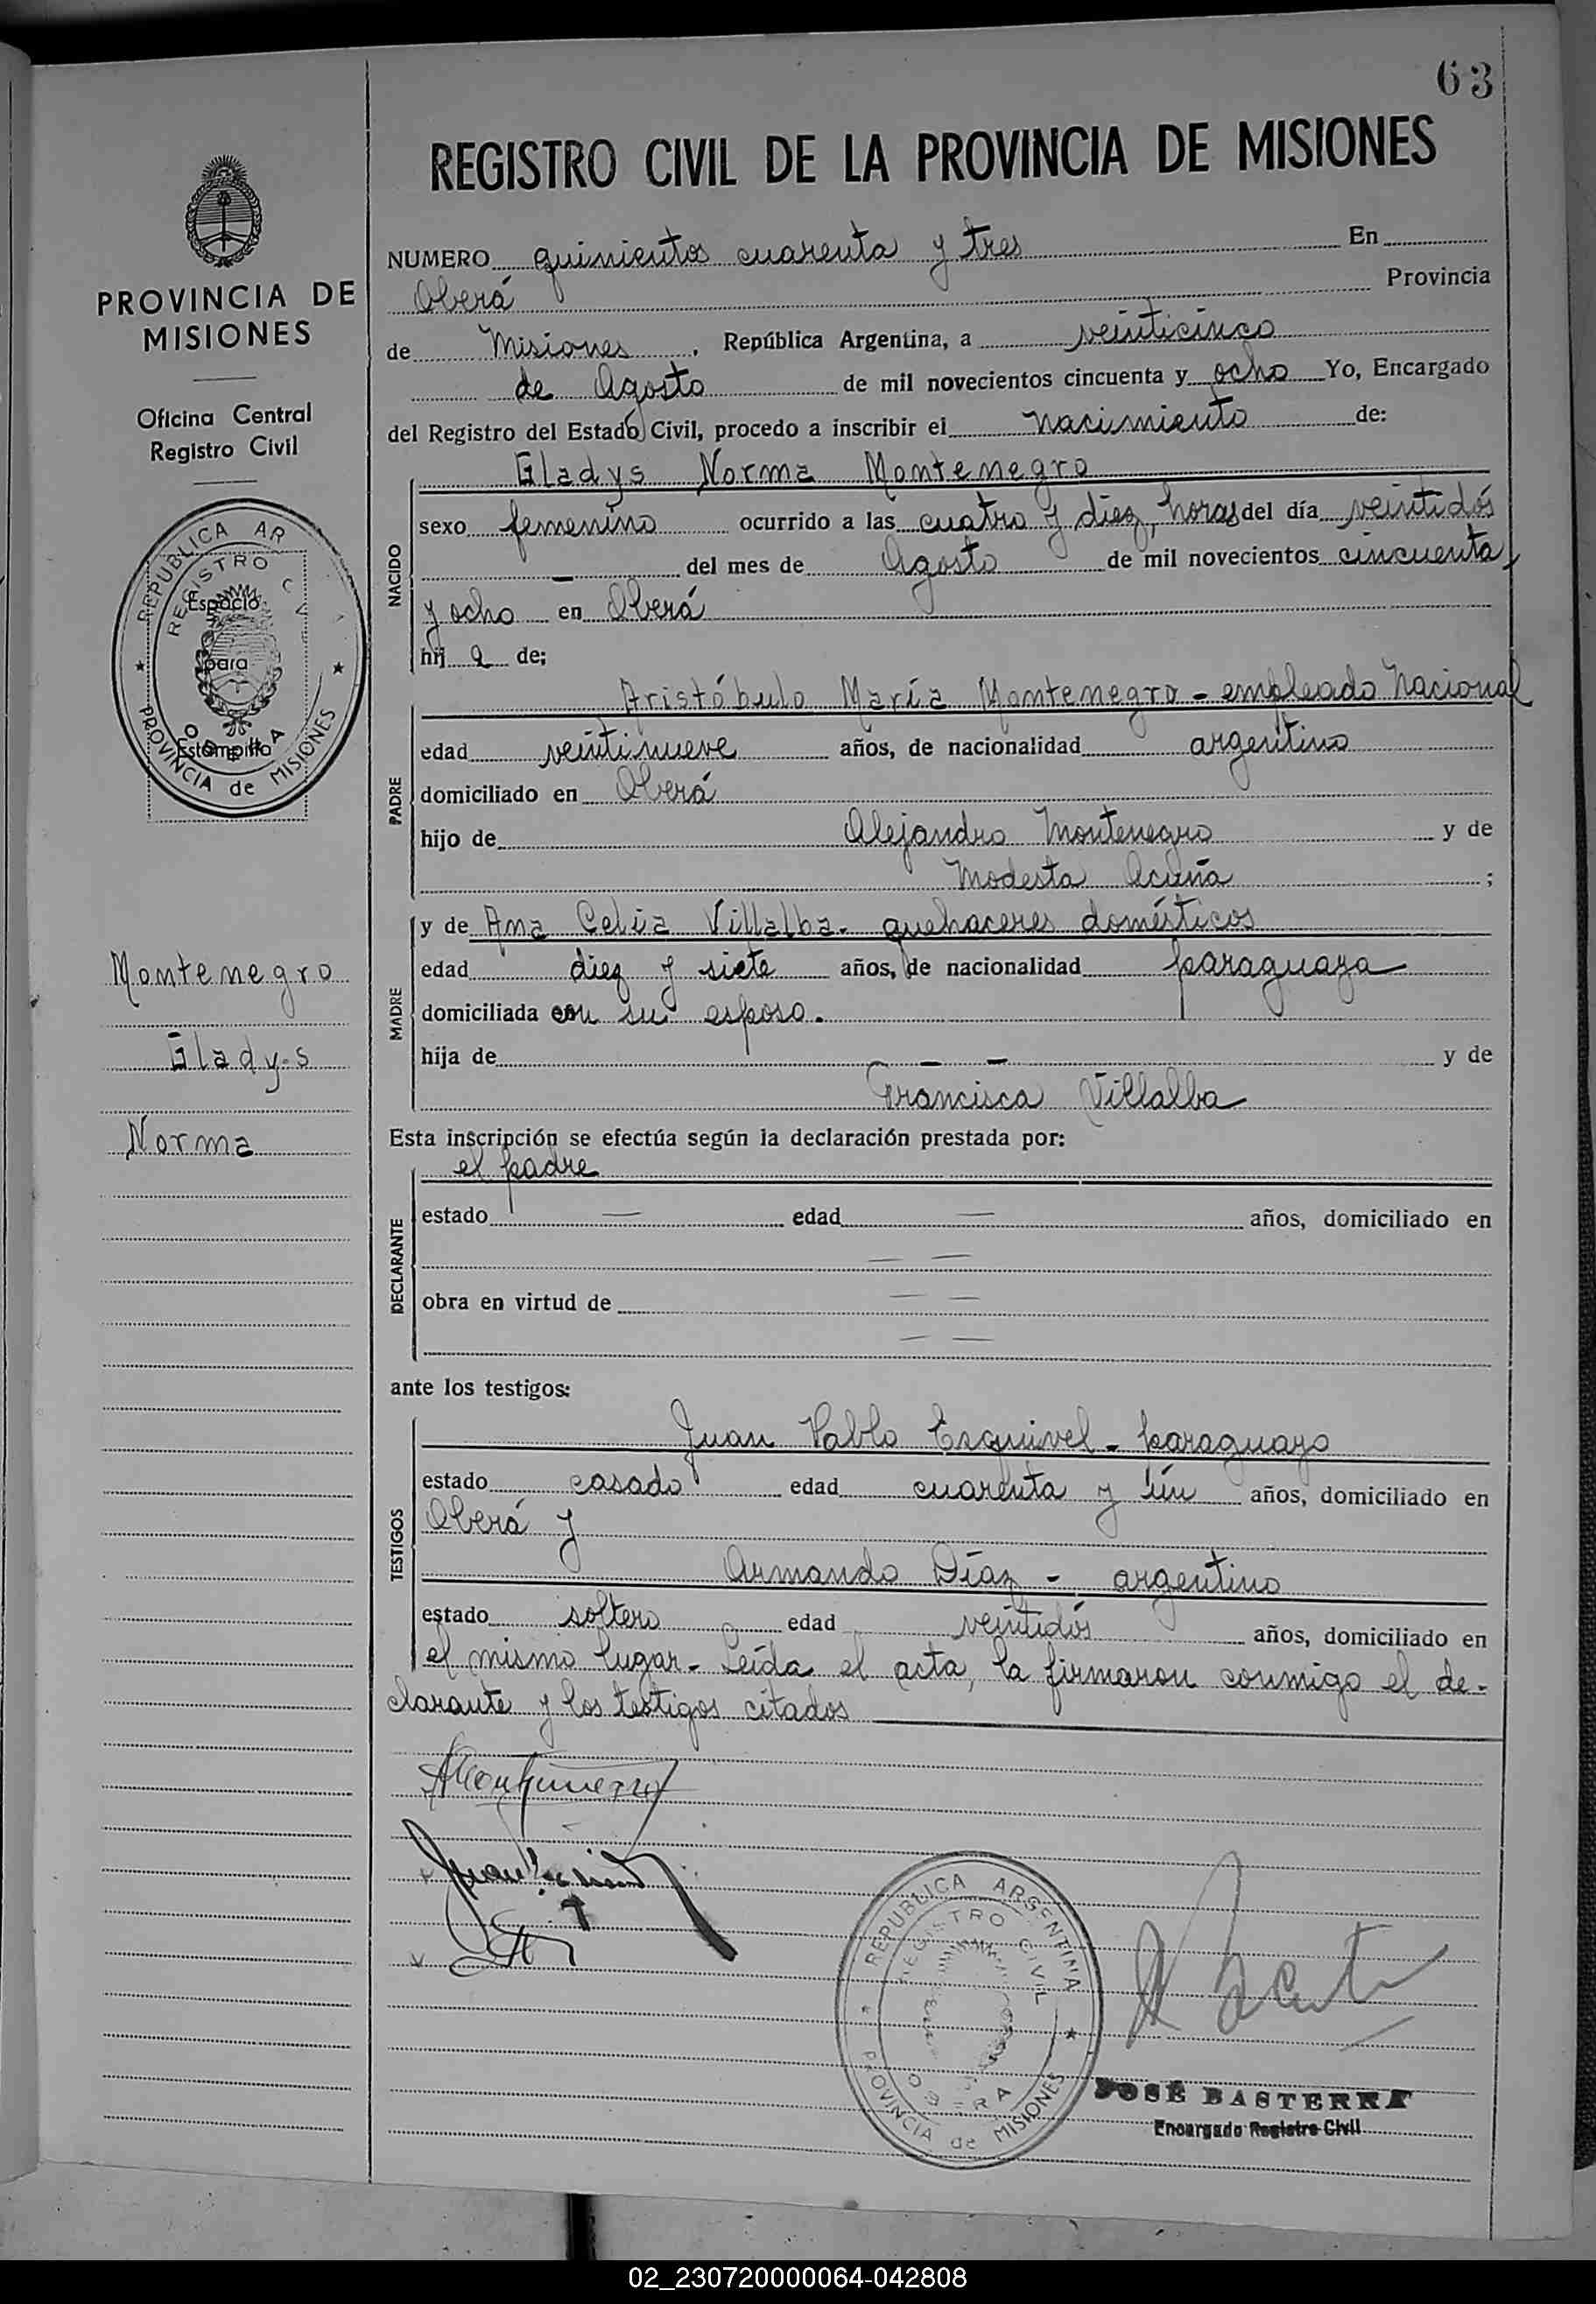 63
REGISTRO CIVIL DE LA PROVINCIA DE MISIONES
PROVINCIA DE
MISIONES
Oficina Central
Registro Civil
REPUBLICA AR
REGISTRO CIV
Espacio
para
Estampilla
OBERA
PROVINCIA de MISIONES
Montenegro
Gladys
Norma
NUMERO quinientos cuarenta y tres En
Oberá Provincia
de Misiones, República Argentina, a veinticinco
de Agosto de mil novecientos cincuenta y ocho Yo, Encargado
del Registro del Estado Civil, procedo a inscribir el nacimiento de:
NACIDO
Gladys Norma Montenegro
sexo femenino ocurrido a las cuatro y diez, horas del día veintidós
— del mes de Agosto de mil novecientos cincuenta
y ocho en Oberá
hij a de;
PADRE
Aristóbulo María Montenegro - empleado Nacional
edad veintinueve años, de nacionalidad argentino
domiciliado en Oberá
hijo de Alejandro Montenegro y de
Modesta Acuña ;
MADRE
y de Ana Celia Villalba. quehaceres domésticos
edad diez y siete años, de nacionalidad paraguaya
domiciliada con su esposo.
hija de — — y de
Francisca Villalba
Esta inscripción se efectúa según la declaración prestada por:
DECLARANTE
el padre
estado — edad — años, domiciliado en
— —
obra en virtud de — —
— —
ante los testigos:
TESTIGOS
Juan Pablo Esquivel - paraguayo
estado casado edad cuarenta y ún años, domiciliado en
Oberá y
Armando Díaz - argentino
estado soltero edad veintidós años, domiciliado en
el mismo lugar - Leída el acta, la firmaron conmigo el de-
clarante y los testigos citados
AMontenegro
REPUBLICA ARGENTINA
REGISTRO CIVIL
OBERA
PROVINCIA de MISIONES
JOSÉ BASTERRA
Encargado Registro Civil
02_230720000064-042808